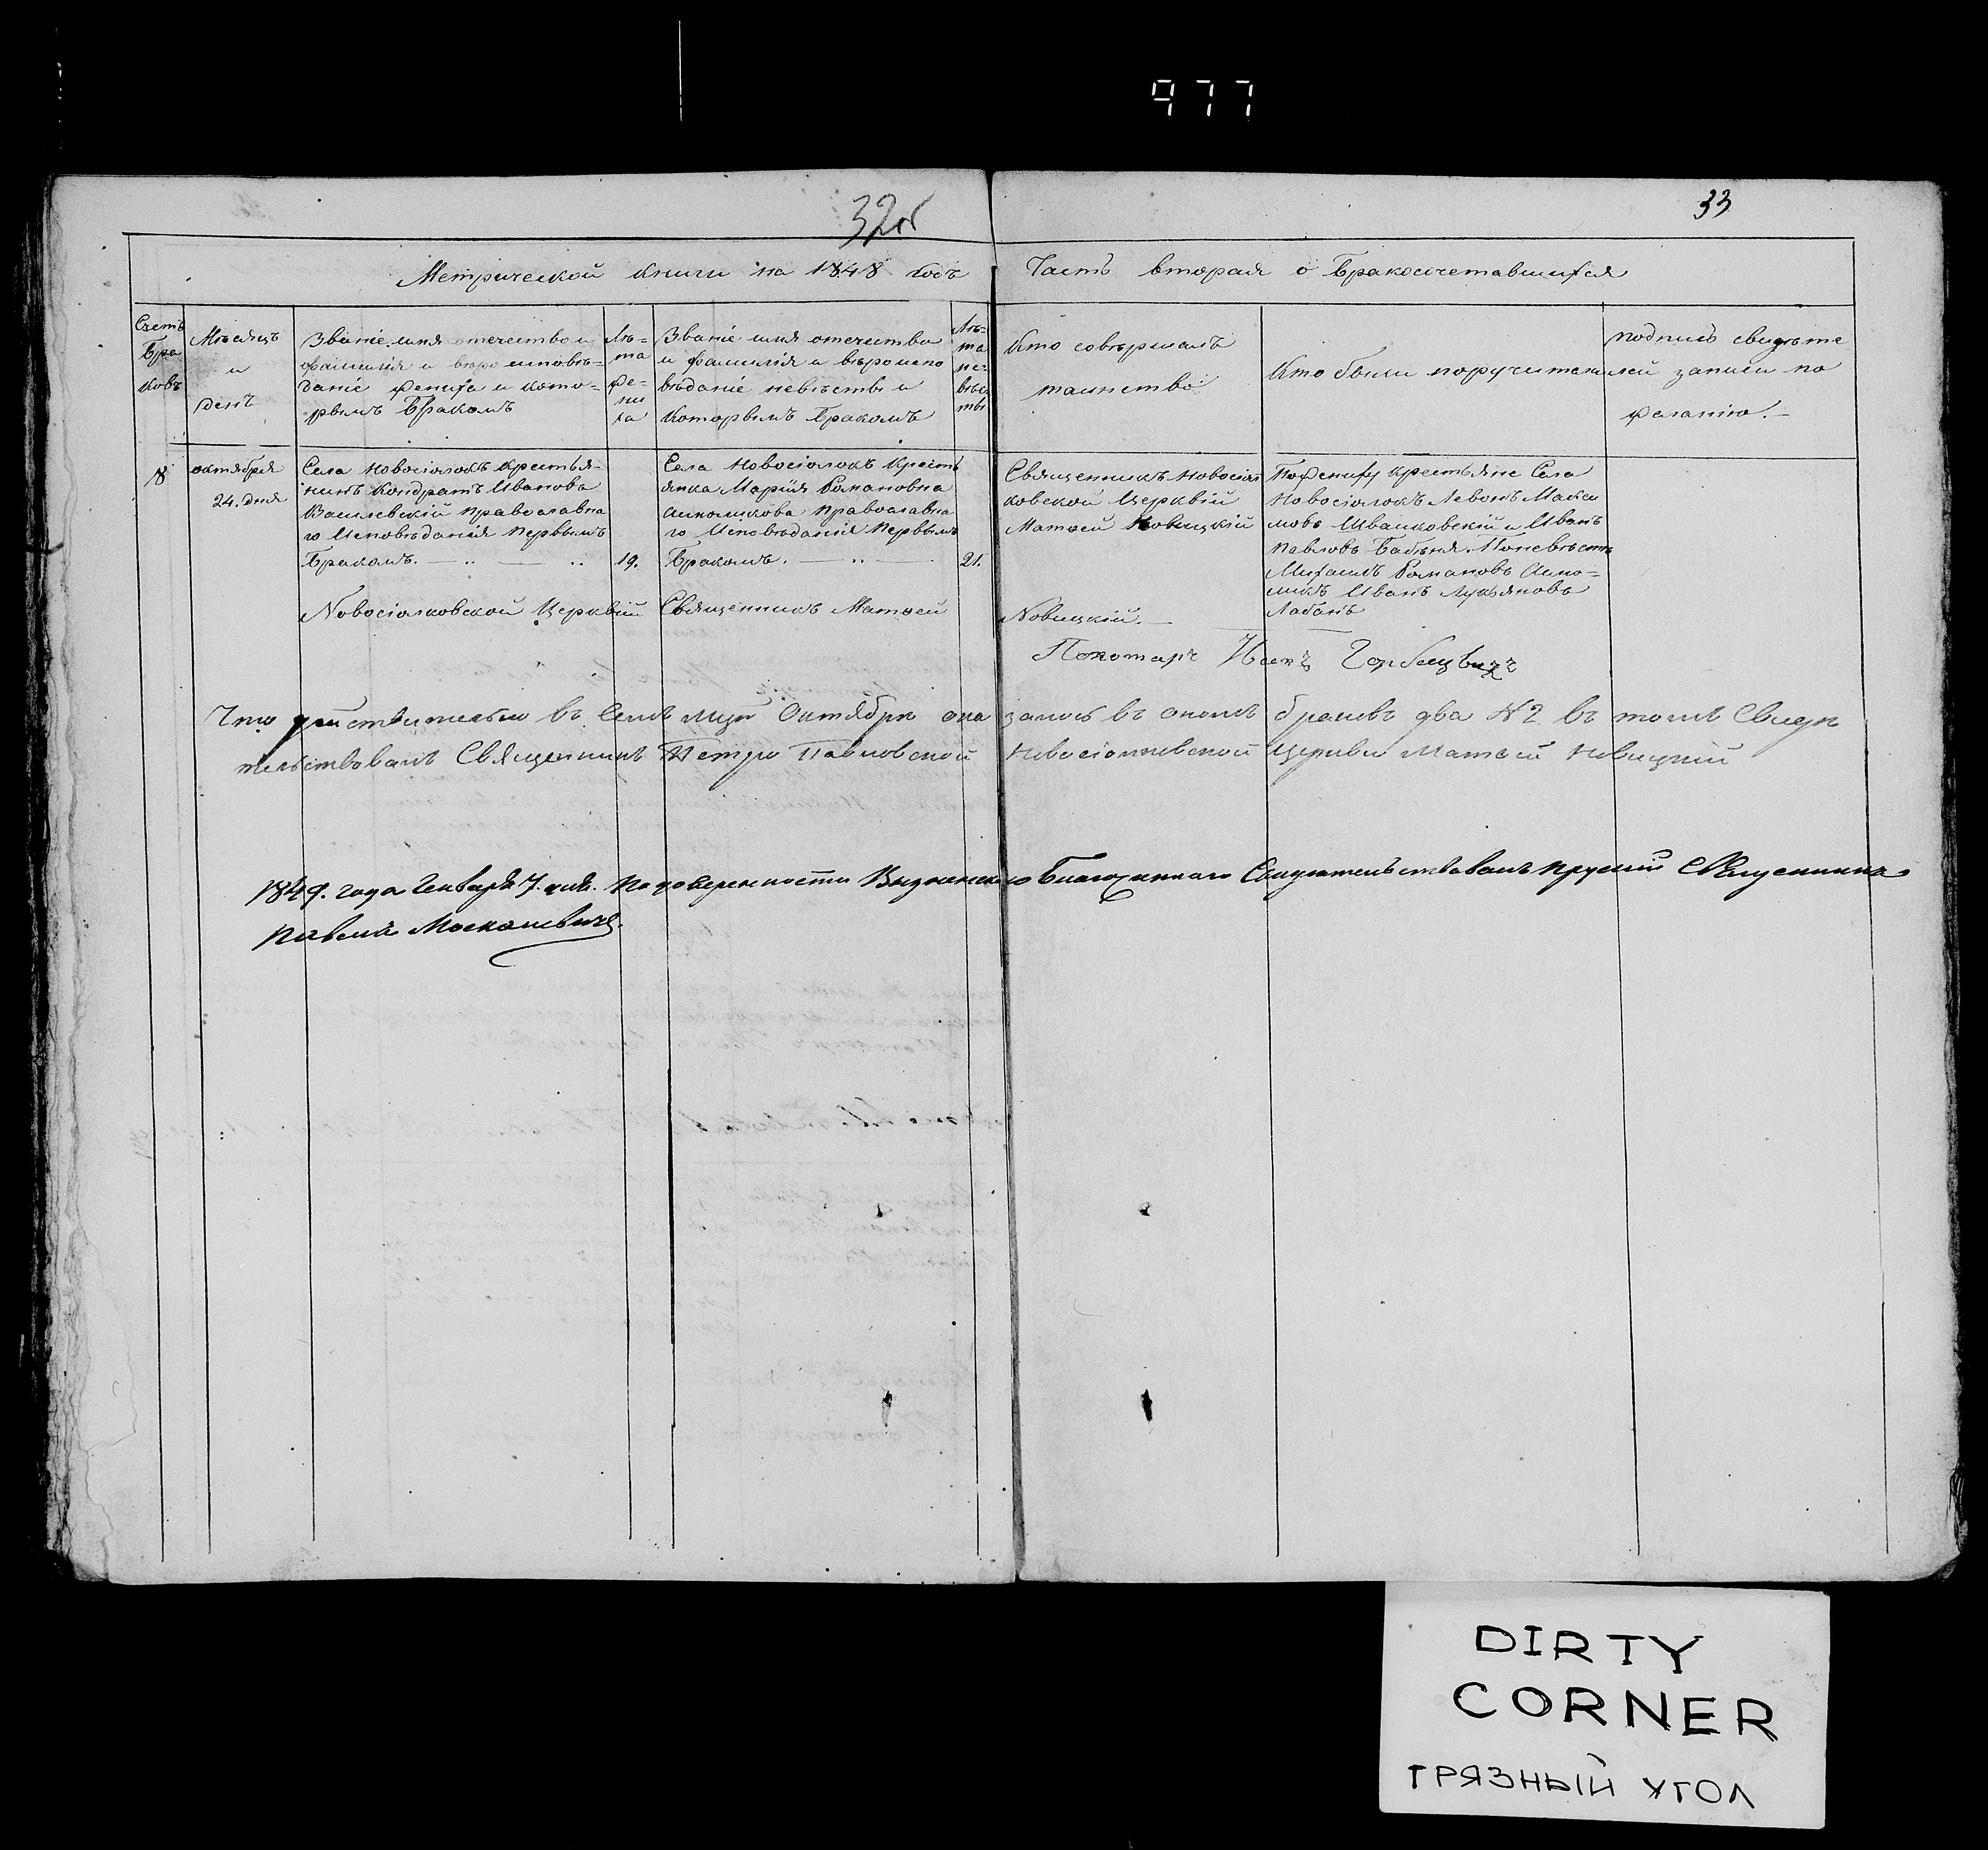 977
32об
33
Метрической книги на 1848 годъ Часть вторая о Бракосочетавшихся
Счетъ Браковъ
Мѣсяцъ и день
Званіе имя отечество и
фамилія и вѣро исповѣ-
даніе жениха и кото-
рымъ Бракомъ
Лѣ-
та
же-
ни
ха
Званіе имя отечество
и фамилія и вѣроиспо
вѣданіе невѣсты и
которымъ Бракомъ
Лѣ-
та
не-
вѣс
ты
Кто совѣршалъ
таинство
Кто были поручители
подпись свидѣте
лей записи по
желанію.
8
октября
24. дня
Села Новосіолокъ крестья-
нинъ Кондратъ Ивановъ
Василевскій православна
го Исповѣданія Первымъ
Бракомъ.
19.
Села Новосіолокъ кресть
янка Марія Романовна
православна
го Исповѣданія Первымъ
Бракомъ.
21.
Священникъ Новосіол
ковской Церквій
Матѳей Новицкій
По жениху крестьяне Села
Новосіолокъ Левонъ Макси
мовъ Ивашковскій и Иванъ
Павловъ Бабыня. По невѣсте
Михаилъ Романовъ
Иванъ Лукьяновъ
Лабанъ
Новосіолковской Церквій Священникъ Матѳей Новицкій.
Пономарь Иванъ Горбацевичъ
Что действительно въ семъ мцѣ Октябрѣ ока залось въ ономъ браковъ два № 2 въ томъ Свидѣ
тельствовалъ Священникъ Петро Павловской Новосіолковской Церкви Матѳей Новицкий
1849. года Генваря 7. дня. По доверенности Благочиннаго Свидетельствовалъ Священникъ
Павелъ Москалевичъ.
DIRTY
CORNER
ГРЯЗНЫЙ УГОЛ